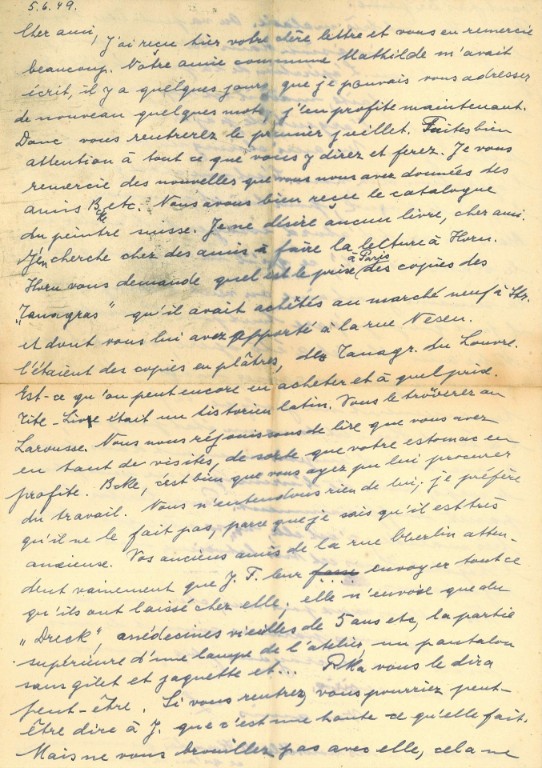 5.6.49.
Cher ami, j'ai reçu hier votre chère lettre et vous en remercie
beaucoup. Notre amie commune Mathilde m'avait
écrit, il y a quelques jours, que je pouvais vous adresser
de nouveau quelques mots, j'en profite maintenant.
Donc vous rentrerez le premier juillet. Faites bien
attention à tout ce que vous y direz et ferez. Je vous
remercie des nouvelles que vous nous avez données des
amis B etc. Nous avons bien reçu le catalogue
du peintre suisse. Je ne désire aucun livre, cher ami.
J'en cherche chez des amis à faire la lecture à Horn.
Horn vous demande quel est le prix à Paris des copies des
„Tanagras" qu'il avait achetés au marché neuf à
et dont vous lui avez apporté à la rue
C'étaient des copies en plâtres, des Tanagr. du Louvre.
Est-ce qu'on peut encore en acheter et à quel prix.
Tite-Live était un historien latin. Vous le trouverez au
Larousse. Nous nous réjouissons de lire que vous avez
en tant de visites, de sorte que votre estomac en
profite. c'est bien que vous ayez pu lui procurer
du travail. Nous n'entendons rien de lui; je préfère
qu'il ne le fait pas, parce que je sais qu'il est très
anxieuse. Vos anciens amis de la rue Oberlin atten-
dent vainement que J. F. leur envoyer tout ce
qu'ils ont laissé chez elle; elle n'envoie que du
„Dreck", médecines vieilles de 5 ans etc, la partie
supérieure d'une lampe de l'atelier, un pantalon
sans gilet et jaquette et... vous le dira
peut-être. Si vous rentrez, vous pourriez peut-
être dire à J. que c'est une honte ce qu'elle fait.
Mais ne vous brouillez pas avec elle, cela ne